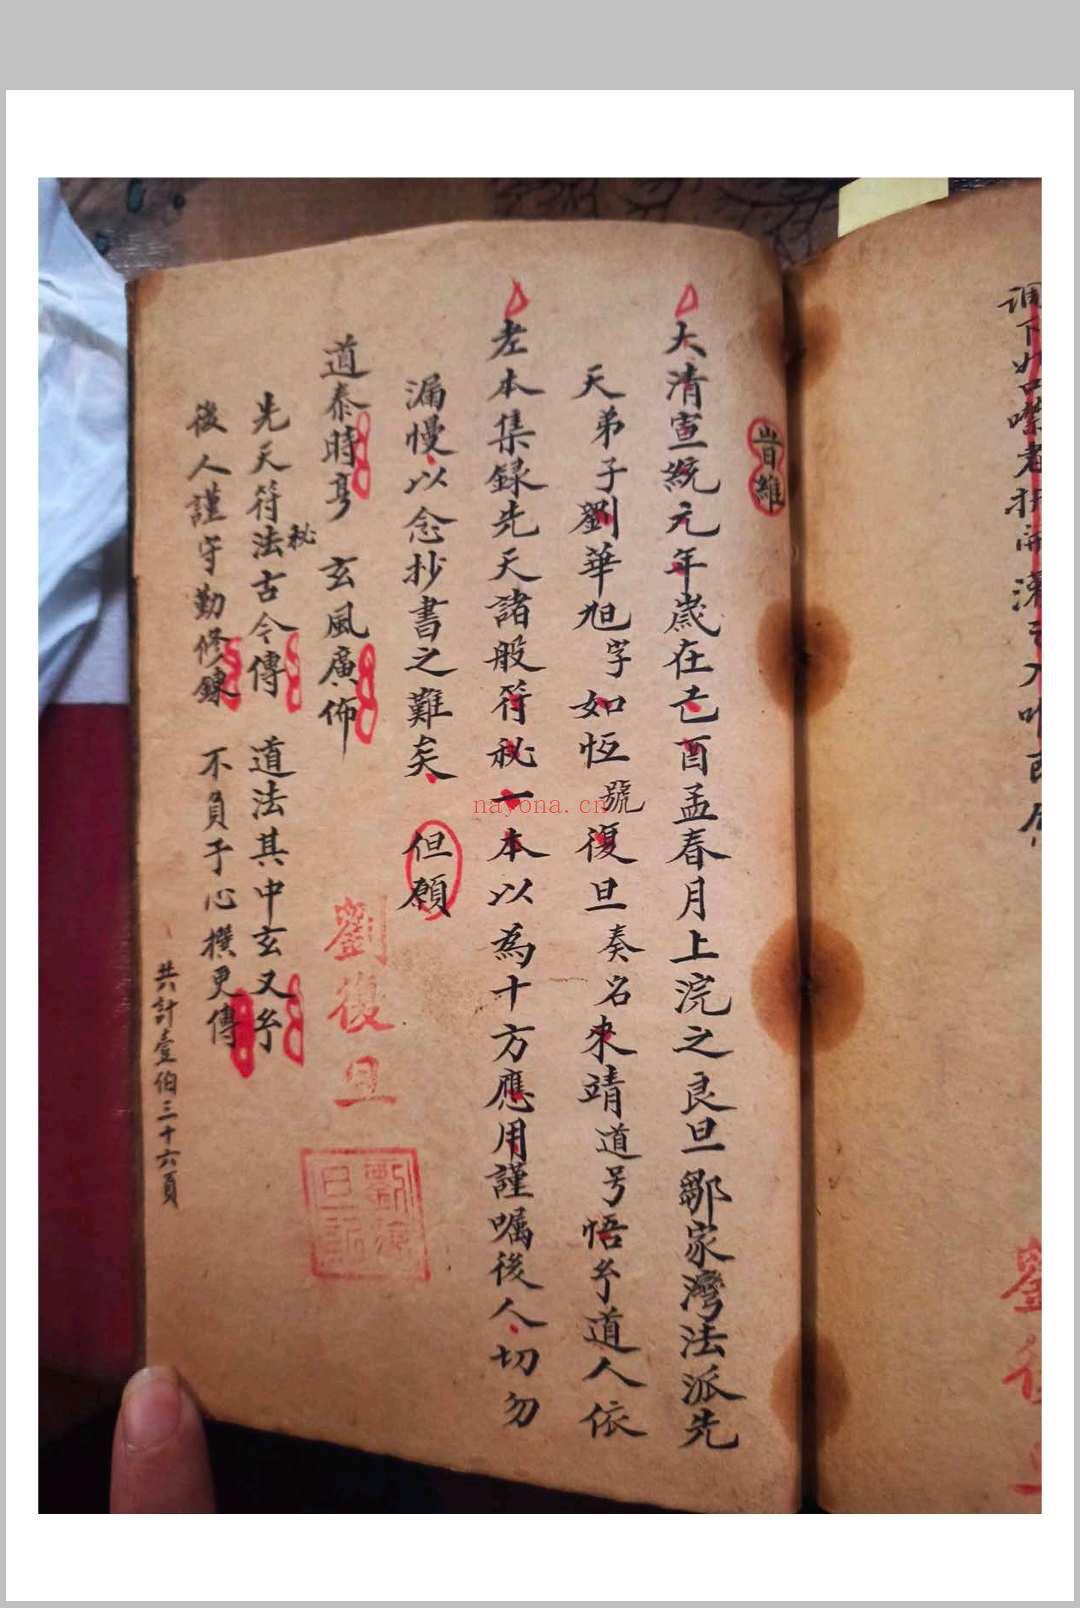 旹維
大清宣統元年歲在己酉孟春月上浣之良旦鄒家灣法派先
天弟子劉華旭字如恆號復旦奏名來靖道号悟玅道人依
老本集録先天諸般符秘一本以為十方應用謹嘱後人切勿
漏慢以念抄書之難矣 但願
道泰時亨 玄風廣佈
先天符法秘古今傳 道法其中玄又玅
後人謹守勤修鍊 不負予心撰更傳
共計壹伯三十六頁
劉復旦
劉復旦記
nayona.cn